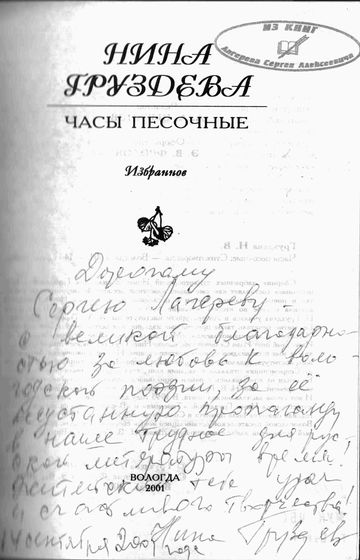 ИЗ КНИГ
Сергея Алексеевича
НИНА
ГРУЗДЕВА
ЧАСЫ ПЕСОЧНЫЕ
Избранное
Дорогому
Сергею Лагереву -
с великой благодарно-
стью за любовь к воло-
годской поэзии, за её
неустанную пропаганду
в наше трудное для рус-
ской литературы время!
тебе удач
и счастливого творчества!
ВОЛОГДА
2001
14 сентября 2001 года Нина Груздева